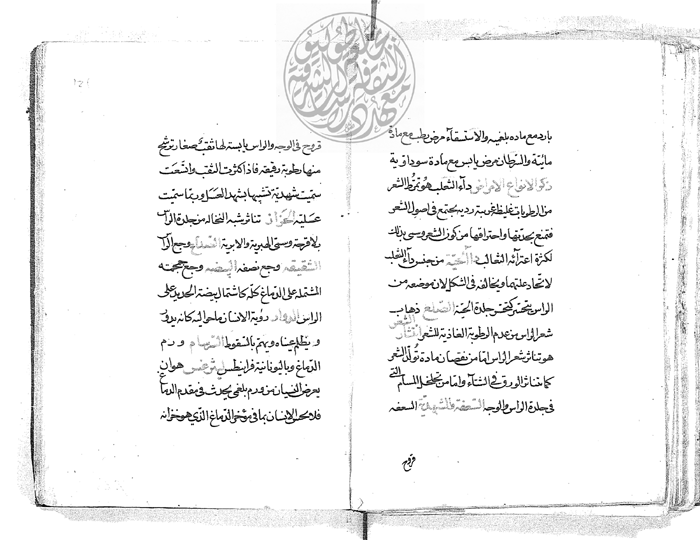 بارد مع ماده بلغميه والاستسقآء مرض رطب مع مادة
مائية والسرطان مرض يابس مع مادة سوداوية
ذكر الانواع الامراض دآء الثعلب هو تمرط الشعر
من الرطوبات غليظة رديه يجتمع فى اصول الشعر
فتمنع بحدتها واحتراقها من كون الشعر وسمى بذلك
لكثرة اعترآئه الثعالب دآء الحيّة من جنس دآء الثعلب
لاتحاد علتهما ويخالفه فى الشكل لان موضعه من
الراس جلدة الحيّة الصلع ذهاب
شعر الراس من عدم الرطوبة الغاذية للشعر انتثار الشعر
هو تناثر شعر الراس امّا من نقصان مادة تولّد الشعر
كما يتناثر الورق فى الشتآء وامّا من تخلخل المسام التى
فى جلدة الراس والوجه السعفة والشهدية السعفه
قروح
قروح فى الوجه والراس يابسة لها ثقب صغار ترشح
منها رطوبة رقيقه فاذا كثرت الثقب واتسعت
سميت شهدية تشبها بشهد العسل وربما سميت
عسلية الحزاز تناثر شبه النخاله من جلدة الراس
بلا قرحة وسمى الهبرية والابرية الصداع وجع الراس
الشقيقه وجع نصفه البيضه وجع جمجمته
المشتمله على الدماغ كلّه كاشتمال بيضة الحديد على
الراس الدوار رؤية الانسان ما حواله كانه يدور
ويظلم عيناه ويهم بالسقوط السرسام ورم
الدماغ وباليونانية قرانيطس ليثرغس هو ان
يعرض النسيان من ورم بلغمى يحدث فى مقدم الدماغ
فلا يحس الانسان بما فى مؤخر الدماغ الذى هو خزانه